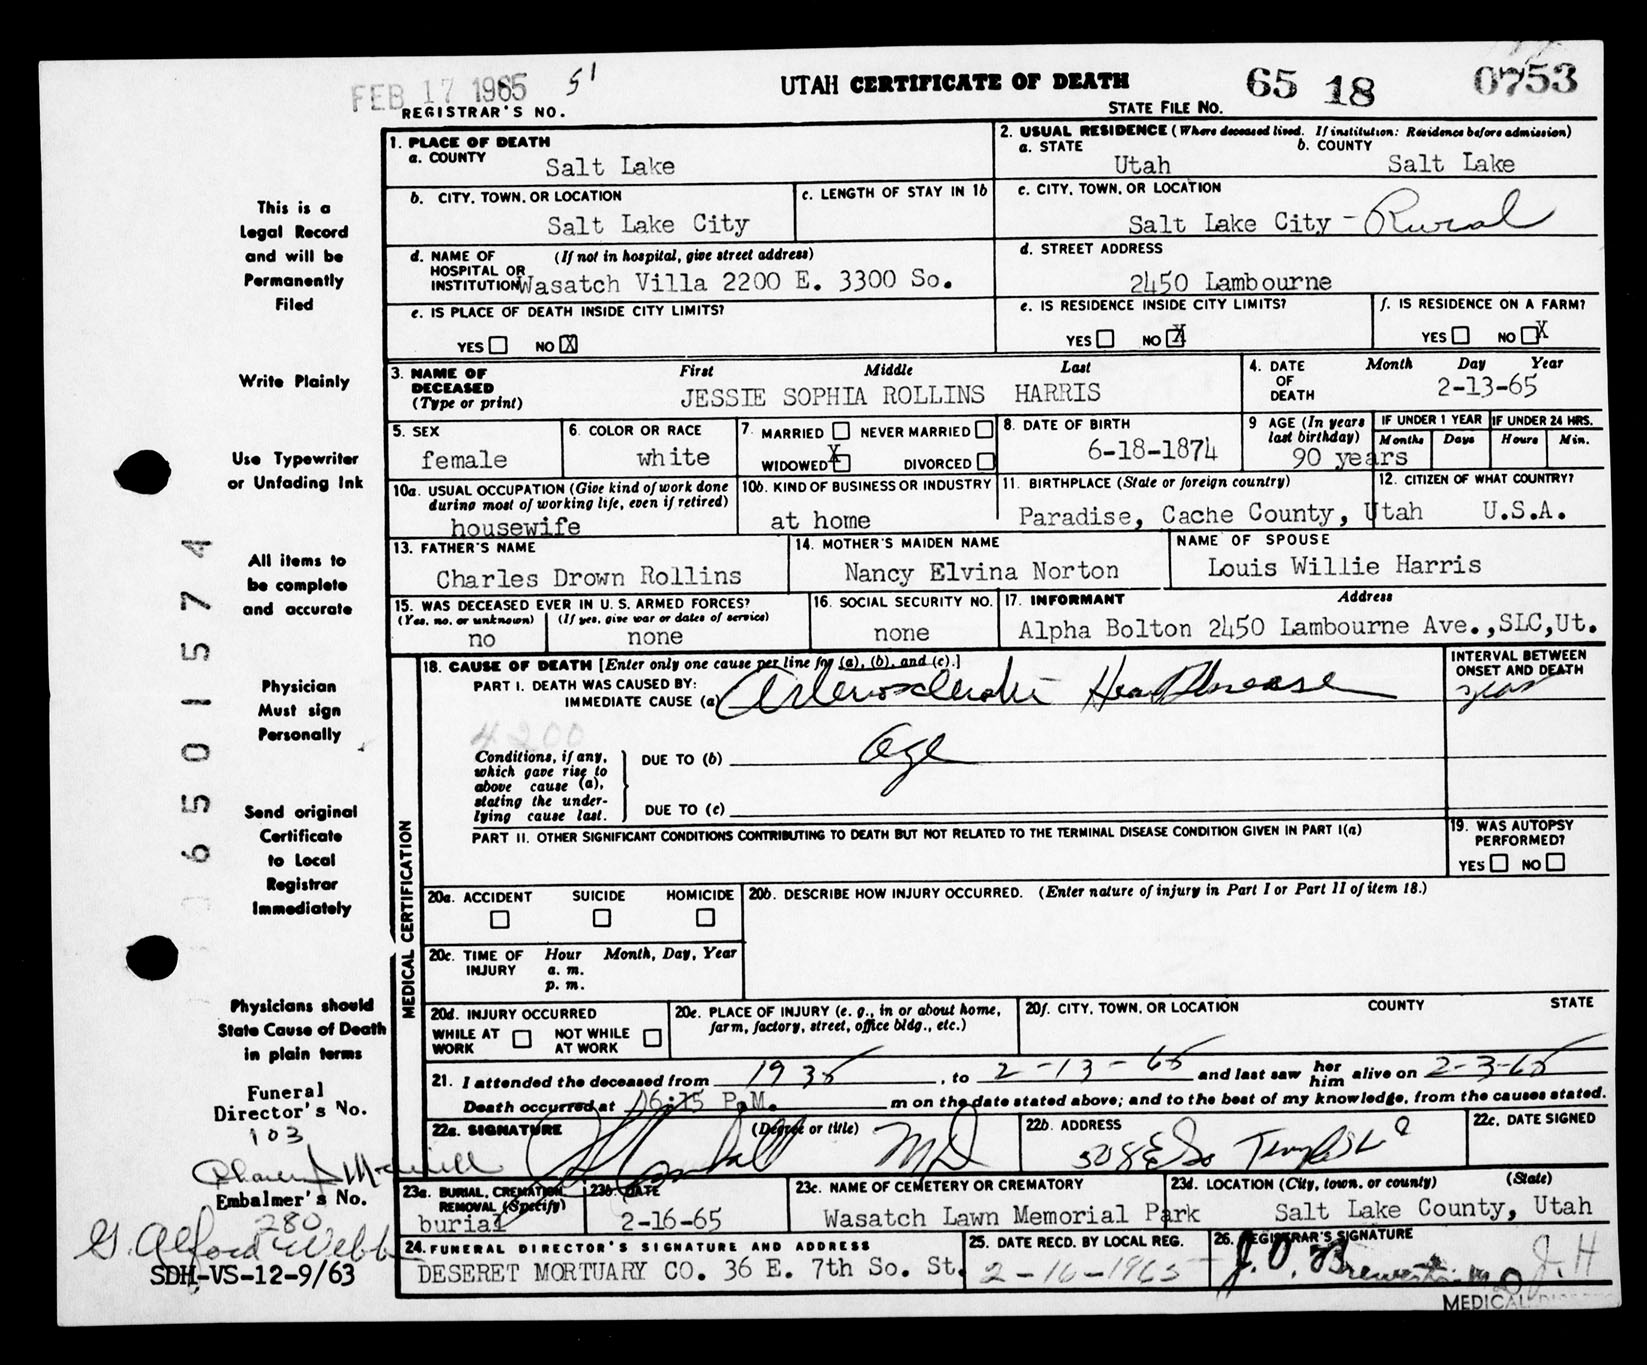 FEB 17 1965 51
UTAH CERTIFICATE OF DEATH 65 18 0753
REGISTRAR'S NO. STATE FILE NO.
1. PLACE OF DEATH
a. COUNTY
Salt Lake
2. USUAL RESIDENCE (Where deceased lived. If institution: Residence before admission)
a. STATE b. COUNTY
Utah Salt Lake
b. CITY, TOWN, OR LOCATION
Salt Lake City
c. LENGTH OF STAY IN 1b
c. CITY, TOWN, OR LOCATION
Salt Lake City - Rural
d. NAME OF (If not in hospital, give street address)
HOSPITAL OR
INSTITUTION Wasatch Villa 2200 E. 3300 So.
d. STREET ADDRESS
2450 Lambourne
e. IS PLACE OF DEATH INSIDE CITY LIMITS?
YES NO X
e. IS RESIDENCE INSIDE CITY LIMITS?
YES NO X
f. IS RESIDENCE ON A FARM?
YES NO X
3. NAME OF First Middle Last
DECEASED
(Type or print) JESSIE SOPHIA ROLLINS HARRIS
4. DATE Month Day Year
OF
DEATH 2-13-65
5. SEX
female
6. COLOR OR RACE
white
7. MARRIED NEVER MARRIED
WIDOWED X DIVORCED
8. DATE OF BIRTH
6-18-1874
9 AGE (In years
last birthday)
90 years
IF UNDER 1 YEAR IF UNDER 24 HRS.
Months Days Hours Min.
10a. USUAL OCCUPATION (Give kind of work done
during most of working life, even if retired)
housewife
10b. KIND OF BUSINESS OR INDUSTRY
at home
11. BIRTHPLACE (State or foreign country)
Paradise, Cache County, Utah
12. CITIZEN OF WHAT COUNTRY?
U.S.A.
13. FATHER'S NAME
Charles Drown Rollins
14. MOTHER'S MAIDEN NAME
Nancy Elvina Norton
NAME OF SPOUSE
Louis Willie Harris
15. WAS DECEASED EVER IN U. S. ARMED FORCES?
(Yes, no, or unknown) (If yes, give war or dates of service)
no none
16. SOCIAL SECURITY NO.
none
17. INFORMANT Address
Alpha Bolton 2450 Lambourne Ave.,SLC,Ut.
18. CAUSE OF DEATH [Enter only one cause per line for (a), (b), and (c).]
PART I. DEATH WAS CAUSED BY:
IMMEDIATE CAUSE (a) Arteriosclerotic Heart Disease
INTERVAL BETWEEN
ONSET AND DEATH
years
4200
Conditions, if any,
which gave rise to
above cause (a),
stating the under-
lying cause last.
DUE TO (b) Age
DUE TO (c)
PART II. OTHER SIGNIFICANT CONDITIONS CONTRIBUTING TO DEATH BUT NOT RELATED TO THE TERMINAL DISEASE CONDITION GIVEN IN PART I(a)
19. WAS AUTOPSY
PERFORMED?
YES NO
MEDICAL CERTIFICATION
20a. ACCIDENT SUICIDE HOMICIDE
20b. DESCRIBE HOW INJURY OCCURRED. (Enter nature of injury in Part I or Part II of item 18.)
20c. TIME OF Hour Month, Day, Year
INJURY a. m.
p. m.
20d. INJURY OCCURRED
WHILE AT NOT WHILE
WORK AT WORK
20e. PLACE OF INJURY (e. g., in or about home,
farm, factory, street, office bldg., etc.)
20f. CITY, TOWN, OR LOCATION COUNTY STATE
21. I attended the deceased from 1935, to 2-13-65 and last saw her him alive on 2-3-65
Death occurred at 06:15 P.M. m on the date stated above; and to the best of my knowledge, from the causes stated.
22a. SIGNATURE (Degree or title) MD
22b. ADDRESS
508 E So Temple SLC
22c. DATE SIGNED
23a. BURIAL, CREMATION,
REMOVAL (Specify)
burial
23b. DATE
2-16-65
23c. NAME OF CEMETERY OR CREMATORY
Wasatch Lawn Memorial Park
23d. LOCATION (City, town, or county) (State)
Salt Lake County, Utah
24. FUNERAL DIRECTOR'S SIGNATURE AND ADDRESS
DESERET MORTUARY CO. 36 E. 7th So. St.
25. DATE RECD. BY LOCAL REG.
2-16-1965
26. REGISTRAR'S SIGNATURE
J. H
MEDICAL
This is a
Legal Record
and will be
Permanently
Filed
Write Plainly
Use Typewriter
or Unfading Ink
All items to
be complete
and accurate
Physician
Must sign
Personally
Send original
Certificate
to Local
Registrar
Immediately
Physicians should
State Cause of Death
in plain terms
Funeral
Director's No.
103
Embalmer's No.
280
G. Alford Webb
SDH-VS-12-9/63
06501574